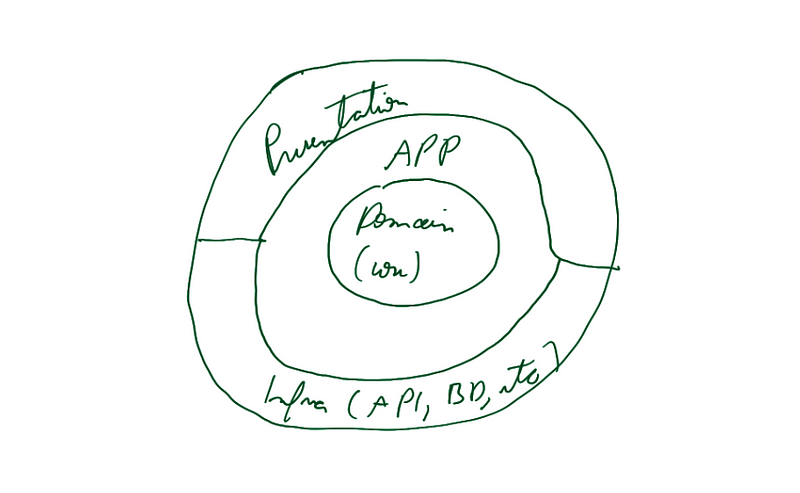 Presentation
APP
Domain
(core)
Infra (API, BD, etc)